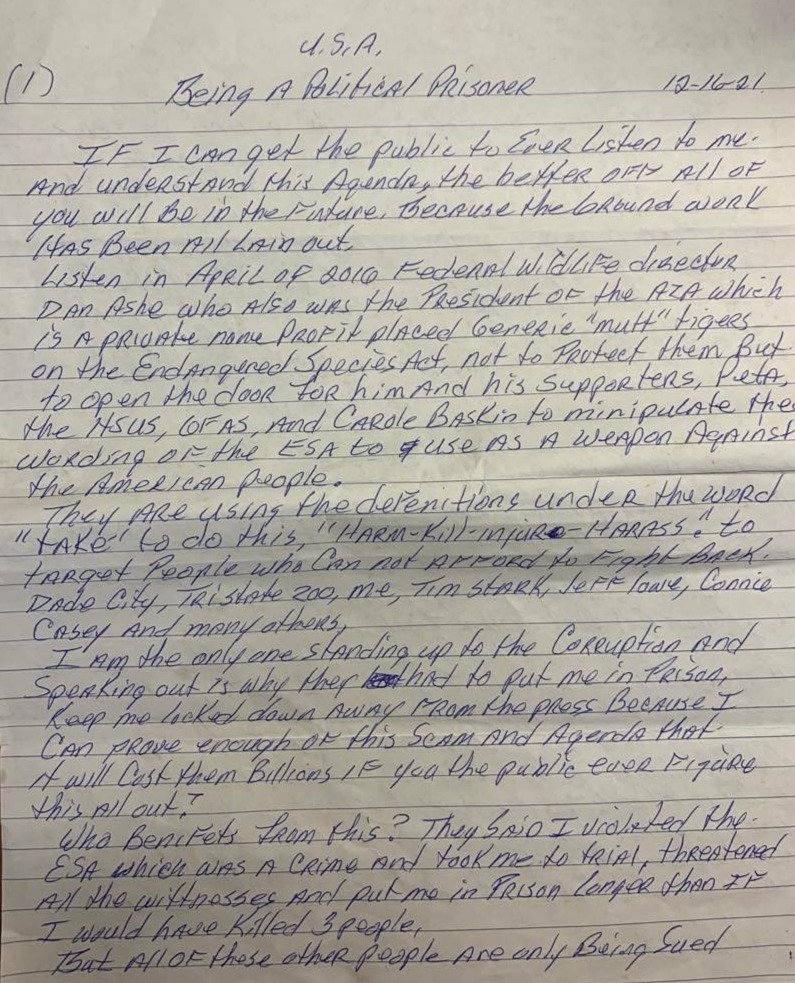 U.S.A.
(1) Being A Political Prisoner 12-16-21
IF I can get the public to Ever Listen to me.
And understand this Agenda, the better off All of
you will Be in the Future. Because the Ground work
HAS Been All LAin out.
Listen in April of 2016 Federal Wildlife director
Dan Ashe who Also was the President of the AZA which
is A private none Profit placed Generic "mutt" tigers
on the Endangered Species Act, not to Protect them But
to open the door for him And his Supporters, Peta,
the HSUS, GFAS, And Carole Baskin to minipulate the
wording of the ESA to use As A weapon Against
the American people.
They Are using the defenitions under the word
"take" to do this, "HARM-Kill-injure-HARASS." to
target People who Can not Afford to Fight Back.
Dade City, Tristate zoo, me, Tim Stark, Jeff Lowe, Connie
Casey And many others,
I Am the only one standing up to the Corruption And
Speaking out is why they had to put me in Prison,
Keep me locked down Away From the press Because I
Can prove enough of this Scam And Agenda that
it will Cost them Billions IF you the public ever Figure
this All out!
Who Benifets from this? They Said I violated the
ESA which was A Crime And took me to trial, threatened
All the wittnesses And put me in Prison Longer than IF
I would have Killed 3 people,
But All OF these other People Are only Being Sued